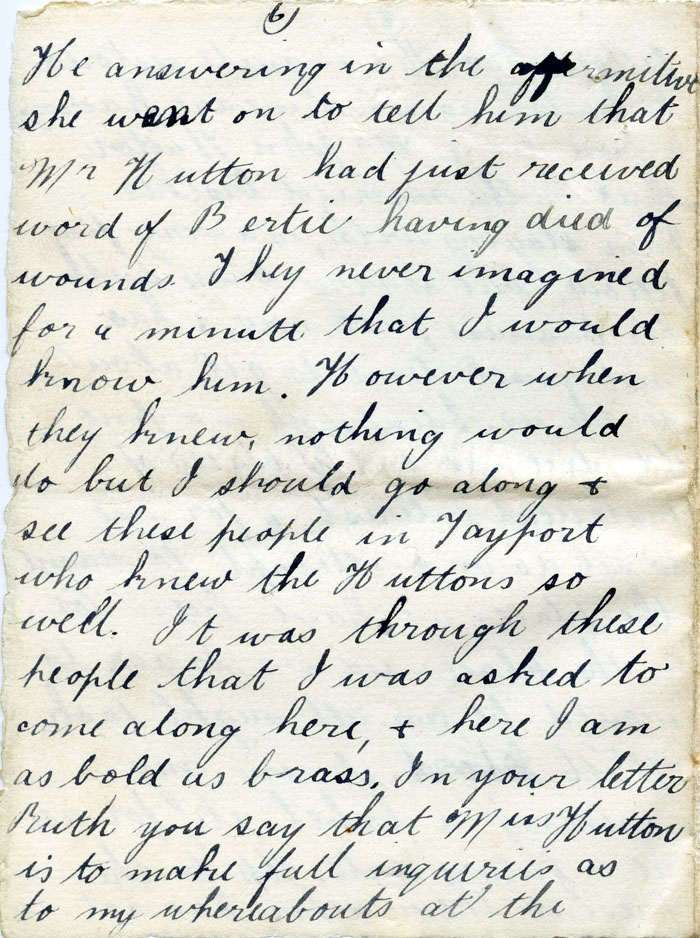 6
He answering in the affermitive
she went on to tell him that
Mr Hutton had just received
word of Bertie having died of
wounds. They never imagined
for a minute that I would
know him. However when
they knew, nothing would
do but I should go along +
see these people in Tayport
who knew the Huttons so
well. It was through these
people that I was asked to
come along here, + here I am
as bold as brass. In your letter
Ruth you say that Miss Hutton
is to make full inquiries as
to my whereabouts at the